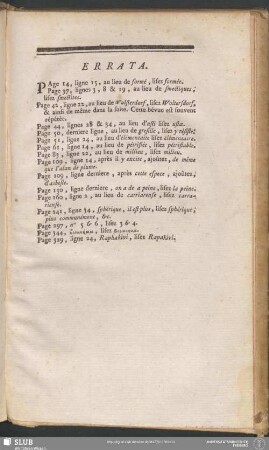 ERRATA.
PAge 14, ligne 15, au lieu de formé, lisez formée.
Page 37, lignes 3, 8 & 19, au lieu de smectiques,
lisez smectites.
Page 42, ligne 22, au lieu de Wolsterdorf, lisez Woltersdorf,
& ainsi de même dans la suite. Cette bévue est souvent
répétée.
Page 44, lignes 28 & 34, au lieu d'usti lisez ustæ.
Page 50, derniere ligne, au lieu de grésille, lisez y résiste.
Page 51, ligne 24, au lieu d'élémentaire lisez
Page 61, ligne 14, au lieu de périsse, lisez périssable.
Page 83, ligne 22, au lieu de milieu, lisez milieu.
Page 109, ligne 14, après il y existe, ajoutez, de même
que l'alun de plume.
Page 109, ligne derniere, après cette espece, ajoutez,
d'asbeste.
Page 130, ligne derniere, on a de a peine, lisez la peine.
Page 160, ligne 2, au lieu de carriarense, lisez carra-
riense.
Page 241, ligne 34, sphérique, il est plus, lisez sphérique;
plus communément, &c.
Page 297, nº 5 & 6, lisez 3 & 4.
Page 344, lisez
Page 329, ligne 24, Raphakivi, lisez Rapakivi.
SLUB